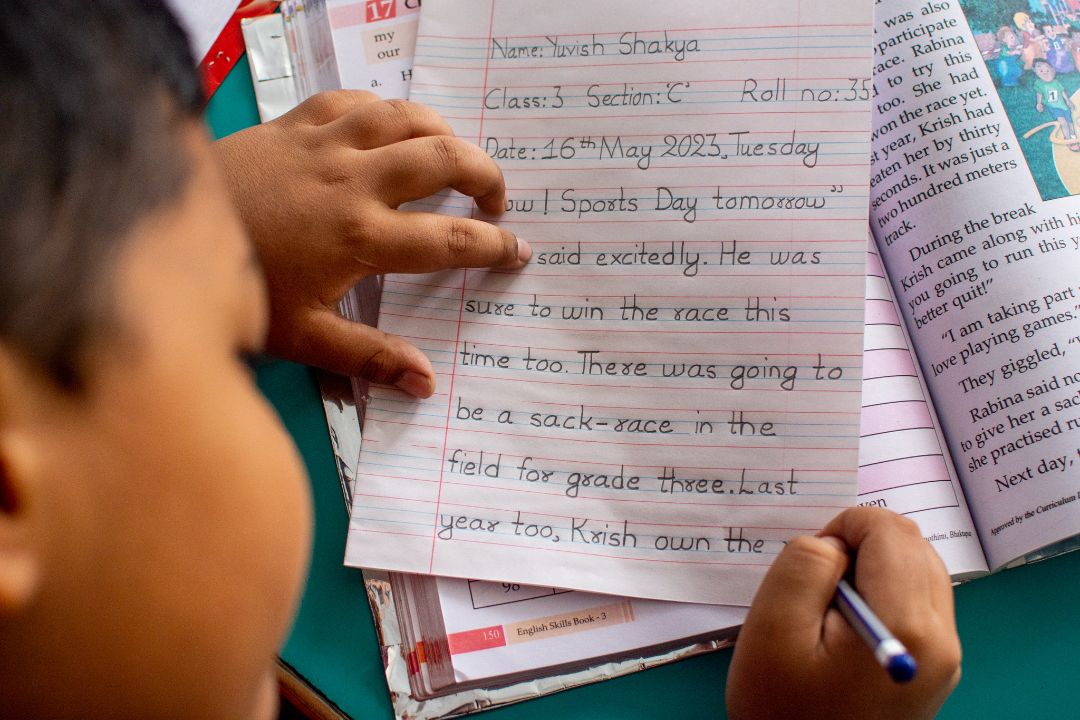 17
my
our
a. H
Name: Yuvish Shakya
Class: 3 Section: 'C' Roll no: 35
Date: 16th May 2023, Tuesday
ow! Sports Day tomorrow"
said excitedly. He was
sure to win the race this
time too. There was going to
be a sack-race in the
field for grade three. Last
year too, Krish own the
150 English Skills Book - 3
was also
participate
race. Rabina
to try this
too. She had
won the race yet.
st year, Krish had
eaten her by thirty
seconds. It was just a
two hundred meters
track.
During the break
Krish came along with hi
you going to run this y
better quit!"
"I am taking part
love playing games."
They giggled, "
Rabina said no
to give her a sac
she practised ru
Next day,
Approved by the Curriculum
ven